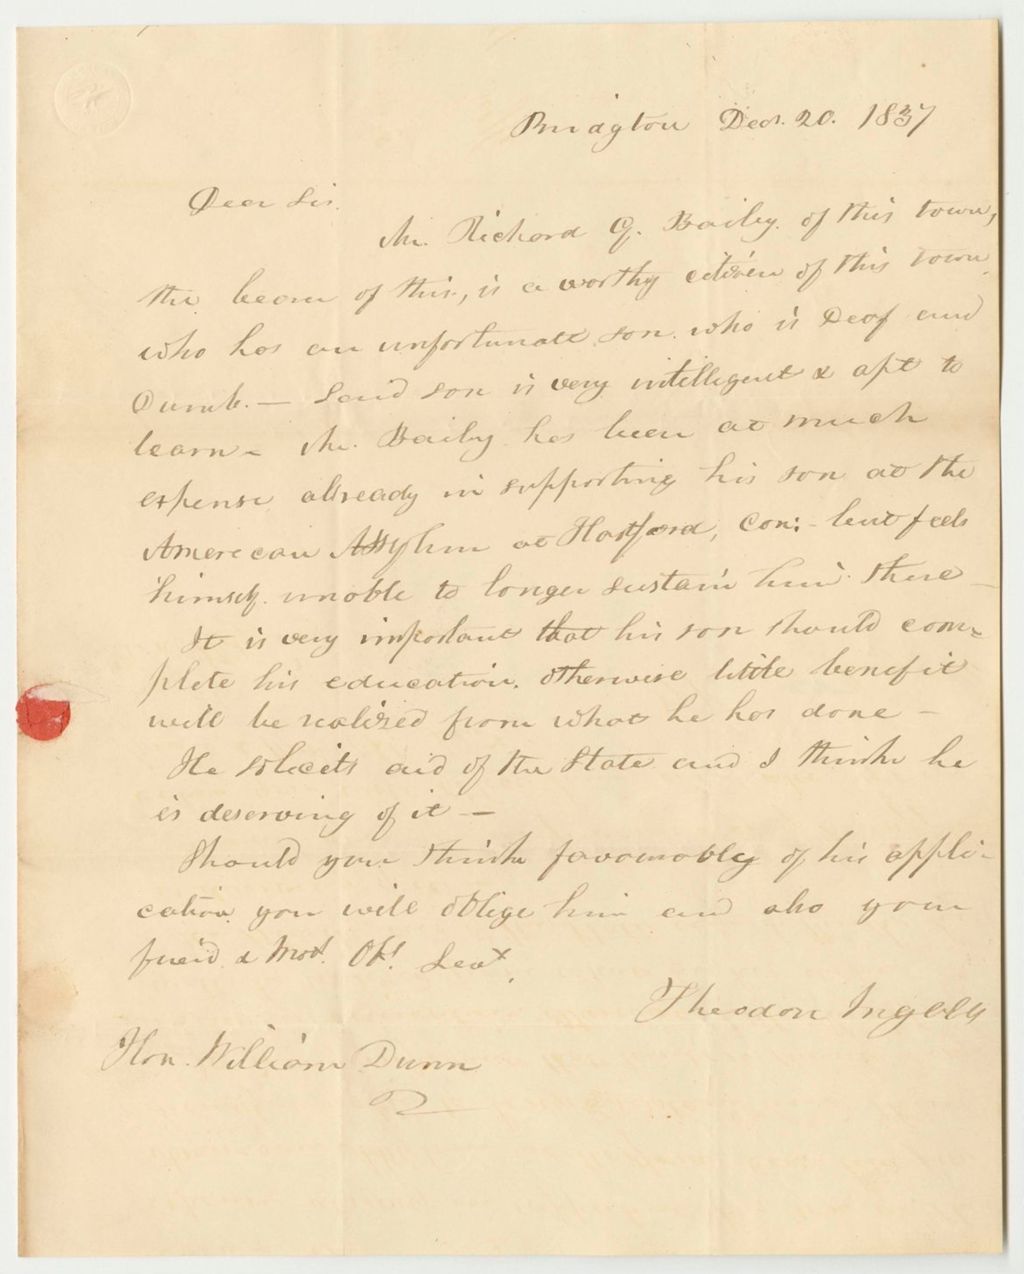 Bridgton Decr. 20. 1837
Dear Sir.
Mr. Richard G. Baily of this town,
the bearer of this, is a worthy citizen of this town,
who has an unfortunate son who is Deaf and
Dumb. — Said son is very intelligent & apt to
learn — Mr. Baily has been at much
expense already in supporting his son at the
American Assylum at Hartford, Con: - but feels
himself unable to longer sustain him there —
It is very important that his son should com-
plete his education, otherwise little benefit
will be realized from what he has done —
He solicits aid of the State and I think he
is deserving of it —
Should you think favourably of his appli-
cation you will oblige him and also your
friend & Most. Obt. Sevt.
Theodore Ingalls
Hon. William Dunn